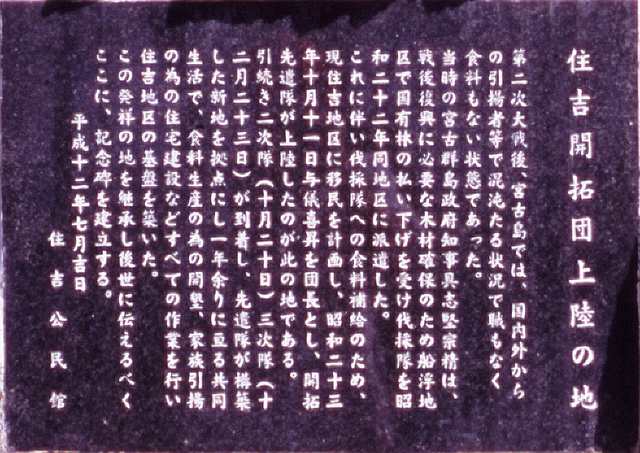 住吉開拓団上陸の地
第二次大戦後、宮古島では、国内外から
の引揚者等で混沌たる状況で職もなく
食料もない状態であった。
当時の宮古群島政府知事具志堅宗精は、
戦後復興に必要な木材確保のため船浮地
区で国有林の払い下げを受け伐採隊を昭
和二十二年同地区に派遣した。
これに伴い伐採隊への食料補給のため、
現住吉地区に移民を計画し、昭和二十三
年十月十一日与儀喜昇を団長とし、開拓
先遣隊が上陸したのが此の地である。
引続き二次隊（十月二十日）三次隊（十
二月二十三日）が到着し、先遣隊が構築
した新地を拠点にし一年余りに亘る共同
生活で、食料生産の為の開墾、家族引揚
の為の住宅建設などすべての作業を行い
住吉地区の基盤を築いた。
この発祥の地を継承し後世に伝えるべく
ここに、記念碑を建立する。
平成十二年七月吉日
住吉公民館